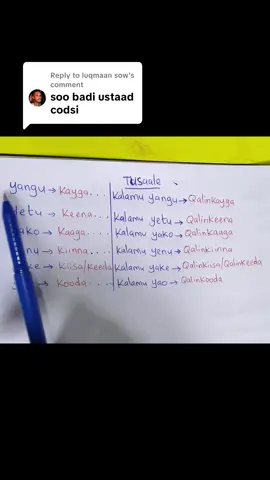 Reply to luqmaan sow's comment
soo badi ustaad codsi
Tusaale
yangu → Kayga... Kalamu yangu → Qalinkayga
yetu → Keena... Kalamu yetu → Qalinkeena
yako → Kaaga... Kalamu yako → Qalinkaaga
Kiinna.... Kalamu yenu → Qalinkiinna
Kiisa/Keeda Kalamu yake → Qalinkiisa/Qalinkeeda
→ Kooda.... Kalamu yao → Qalinkooda